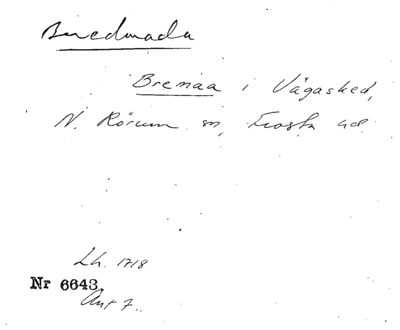 Bredmada
Bremaa i Vägasked,
N. Rörum sn, Frosta hd.
Lh. 1718
Nr 6643.
Ant 7.